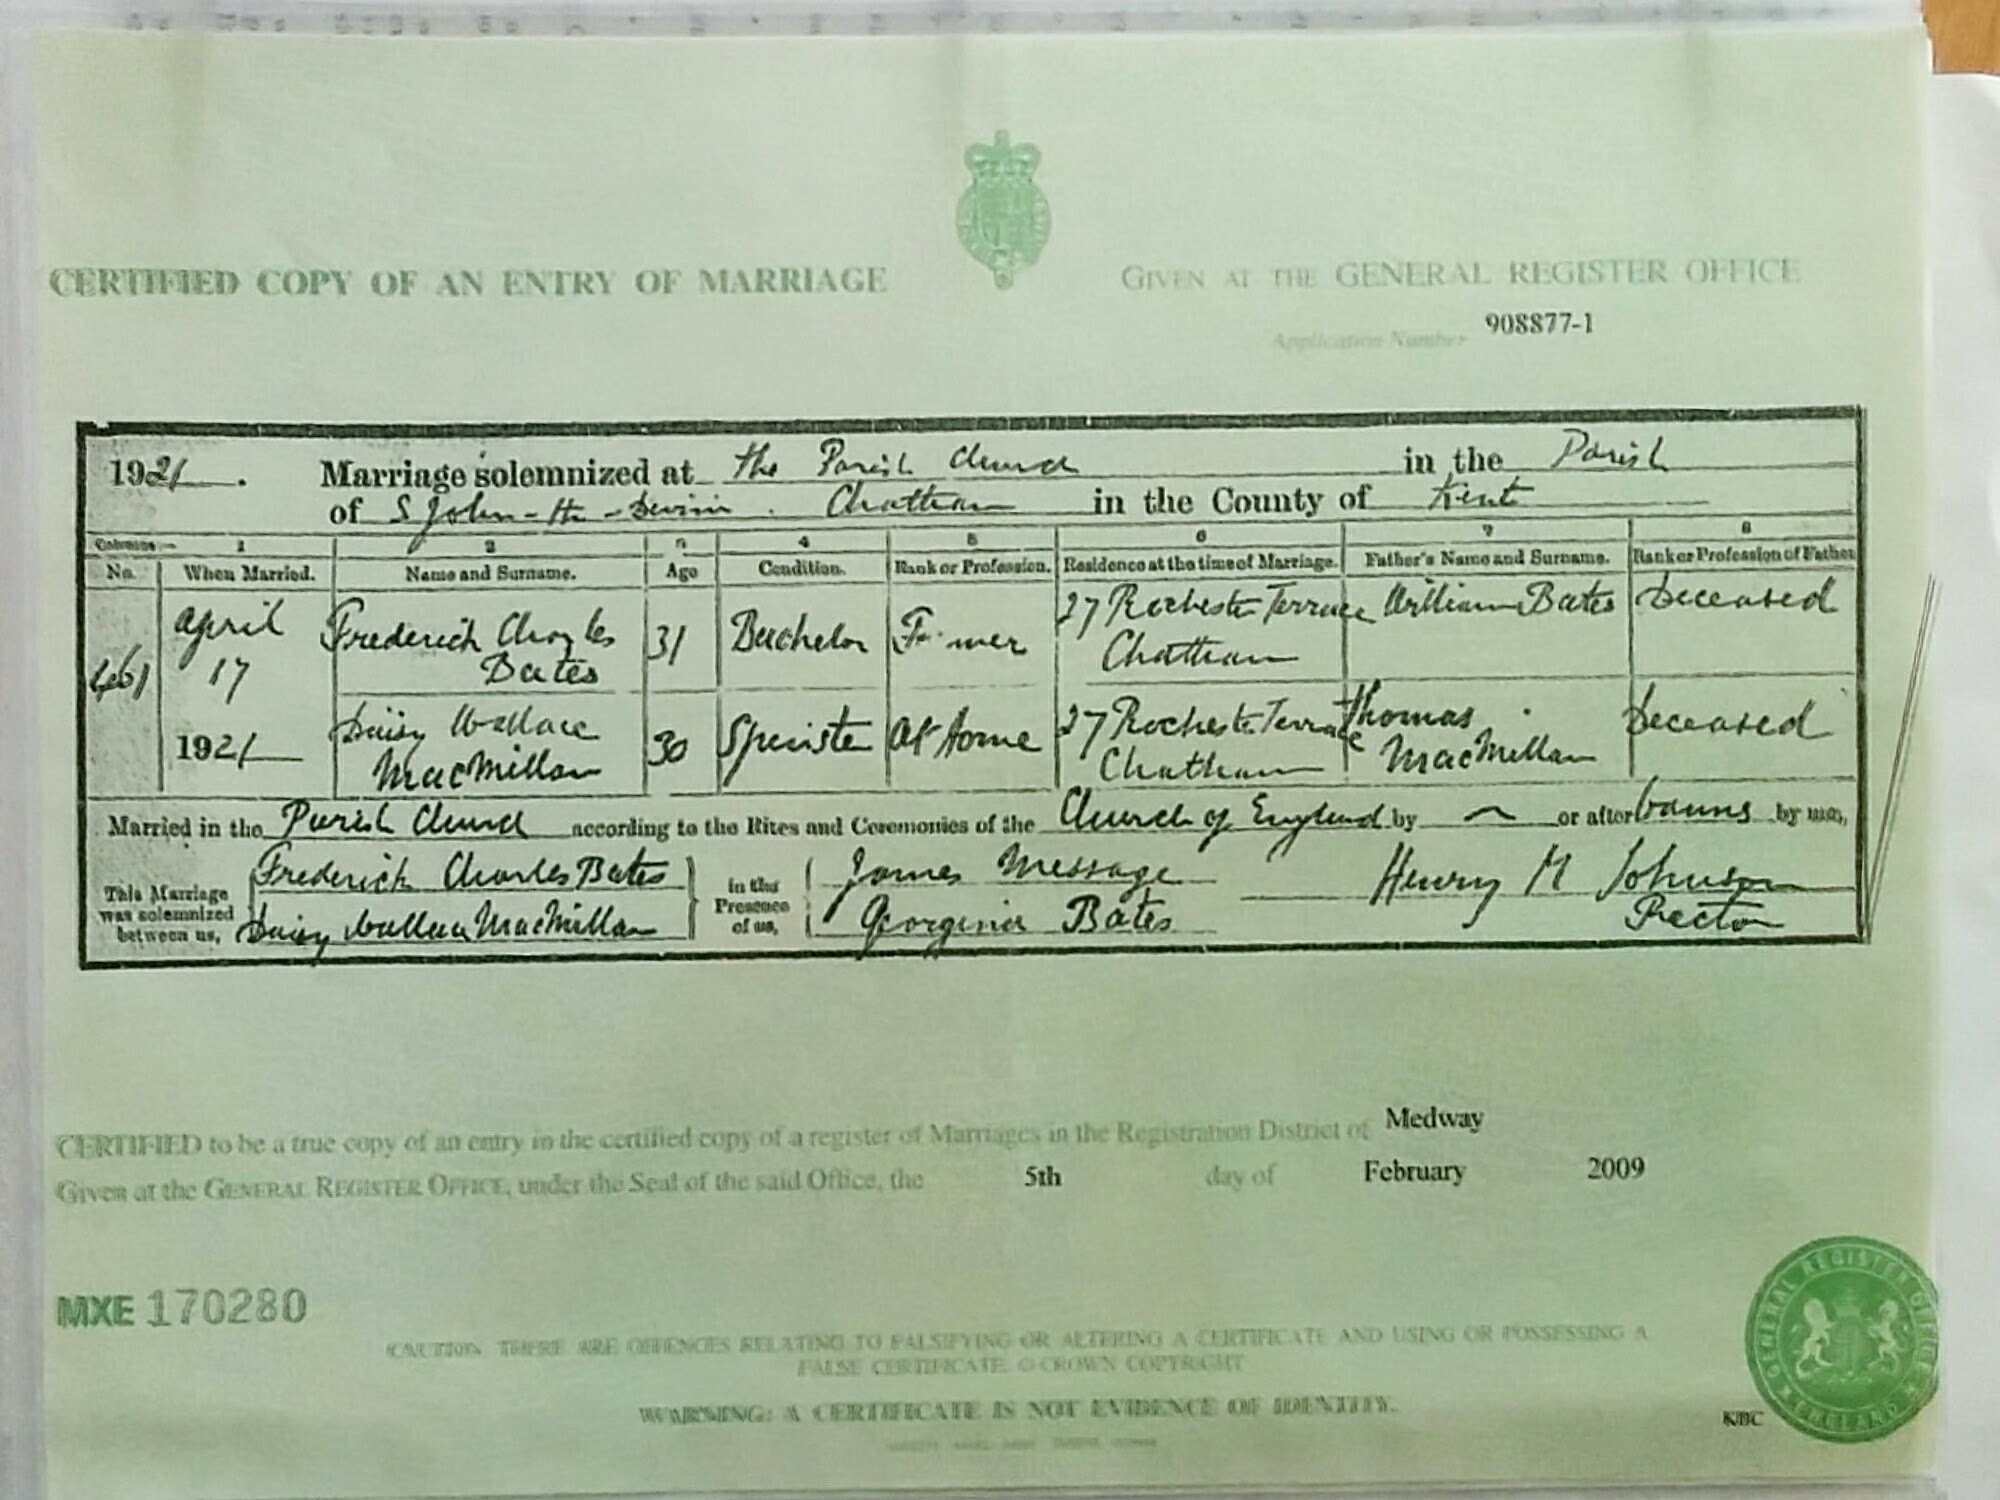 CERTIFIED COPY OF AN ENTRY OF MARRIAGE
GIVEN AT THE GENERAL REGISTER OFFICE
Application Number 908877-1
1921. Marriage solemnized at the Parish Church in the Parish
of S John-the-Divine. Chatham in the County of Kent
Columns:— 1 2 3 4 5 6 7 8
No. When Married. Name and Surname. Age Condition. Rank or Profession. Residence at the time of Marriage. Father's Name and Surname. Rank or Profession of Father
461 April 17 1921 Frederick Charles Bates 31 Bachelor 27 Rochester Terrace Chatham William Bates Deceased
Daisy Wallace MacMillan 30 Spinster At Home 27 Rochester Terrace Chatham Thomas MacMillan Deceased
Married in the Parish Church according to the Rites and Ceremonies of the Church of England by — or after banns by me,
This Marriage was solemnized between us, Frederick Charles Bates
Daisy Wallace MacMillan
in the Presence of us, James Message
Georgina Bates
Henry M Johnson
Rector
CERTIFIED to be a true copy of an entry in the certified copy of a register of Marriages in the Registration District of Medway
Given at the GENERAL REGISTER OFFICE, under the Seal of the said Office, the 5th day of February 2009
MXE 170280
CAUTION: THERE ARE OFFENCES RELATING TO FALSIFYING OR ALTERING A CERTIFICATE AND USING OR POSSESSING A
FALSE CERTIFICATE © CROWN COPYRIGHT
WARNING: A CERTIFICATE IS NOT EVIDENCE OF IDENTITY.
KBC
GENERAL REGISTER OFFICE
ENGLAND